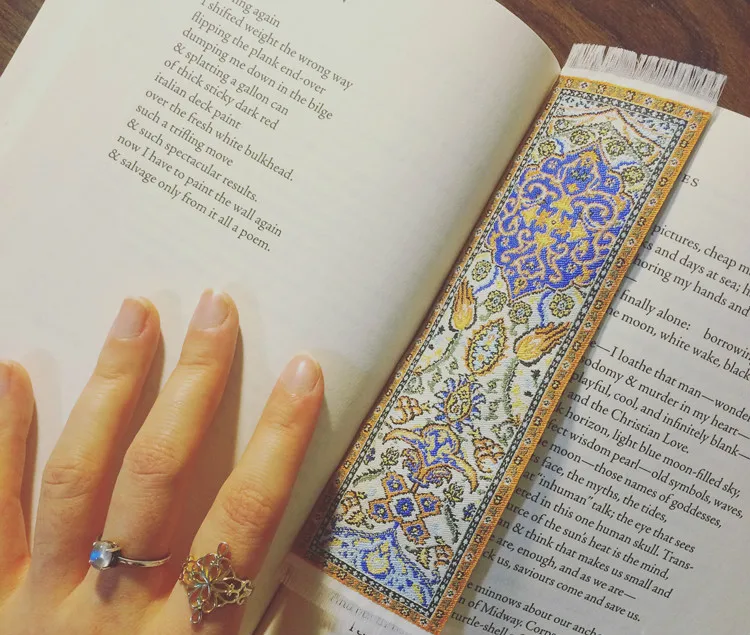 ing again
I shifted weight the wrong way
flipping the plank end-over
dumping me down in the bilge
& splatting a gallon can
of thick sticky dark red
italian deck paint
over the fresh white bulkhead.
such a trifling move
& such spectacular results.
now I have to paint the wall again
& salvage only from it all a poem.
ES
pictures, cheap m
ks and days at sea; h
noring my hands and
finally alone: borrowin
e moon, white wake, black
I loathe that man—wonde
odomy & murder in my heart—
playful, cool, and infinitely blank—
and the Christian Love.
k horizon, light blue moon-filled sky,
fect wisdom pearl—old symbols, waves,
e moon—those names of goddesses,
ts face, the myths, the tides,
at "inhuman" talk; the eye that sees
ered in this one human skull. Trans-
urce of the sun's heat is the mind,
n & think that makes us small and
are, enough, and as we are—
ck us, saviours come and save us.
e minnows about our anch
n of Midway. Corp
turtle-shell